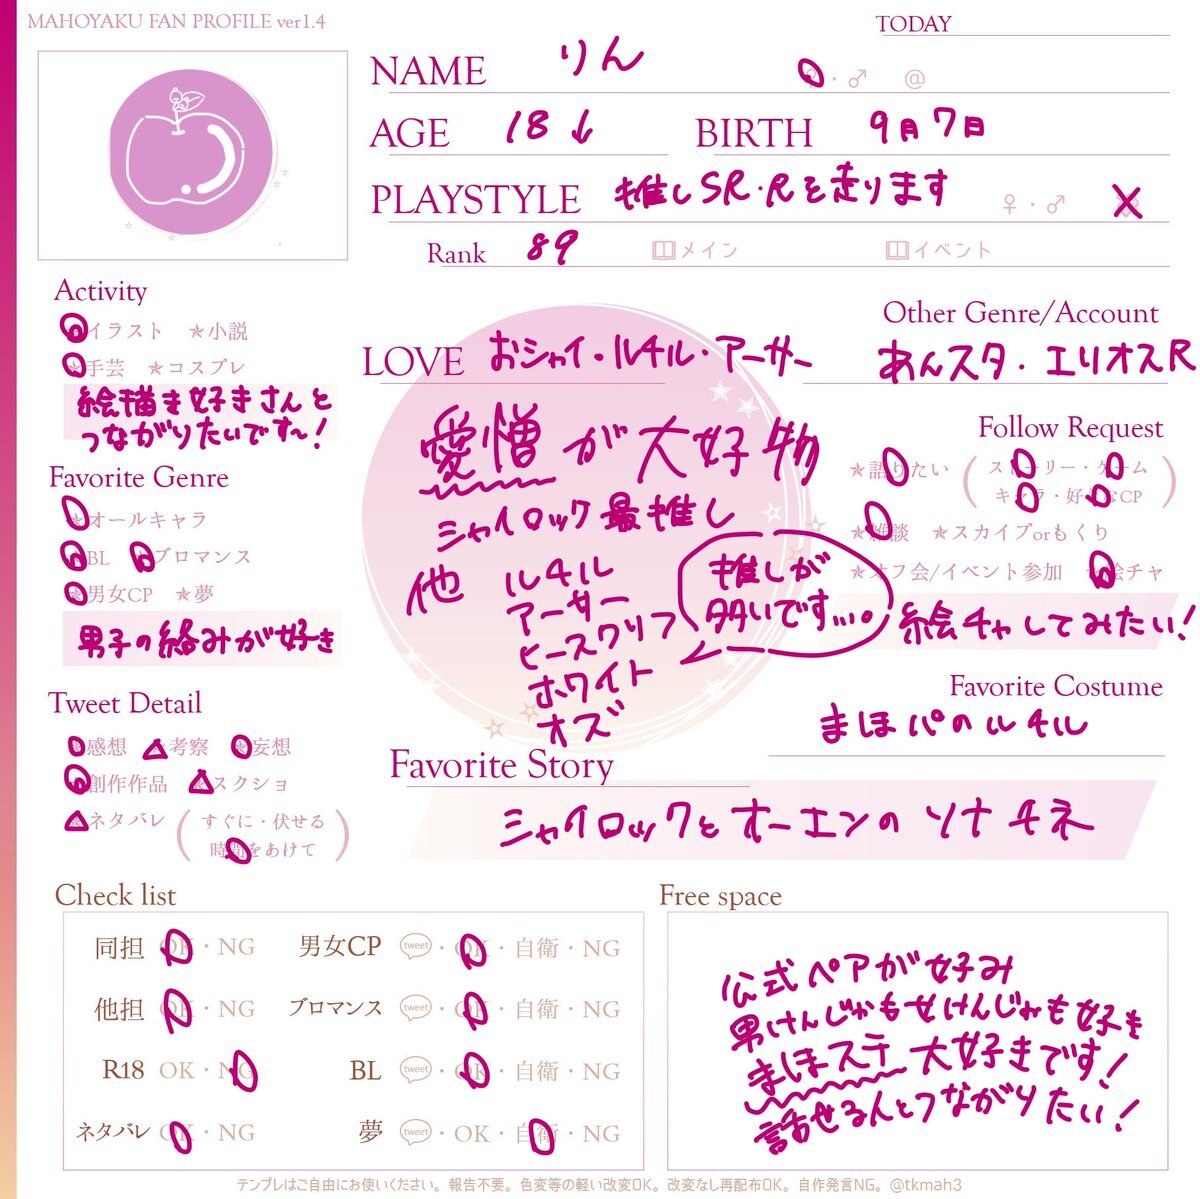 MAHOYAKU FAN PROFILE ver1.4
TODAY
NAME りん ♀・♂ @
AGE 18↓ BIRTH 9月7日
PLAYSTYLE 推しSR・Rを走ります ♀・♂
Rank 89 メイン イベント
Activity
★イラスト ★小説
★手芸 ★コスプレ
絵描き好きさんと
つながりたいです〜!
Favorite Genre
★オールキャラ
★BL ★ブロマンス
★男女CP ★夢
男子の絡みが好き
Tweet Detail
★感想 ★考察 ★妄想
★創作作品 ★スクショ
★ネタバレ (すぐに・伏せる
時間をあけて)
LOVE おシャイ・ルチル・アーサー
愛憎が大好物
シャイロック最推し
他 ルチル
アーサー
ヒースクリフ
ホワイト
オズ
推しが
多いです…。
Other Genre/Account
あんスタ・エリオスR
Follow Request
★語りたい (ストーリー・ゲーム
キャラ・好きなCP)
★雑談 ★スカイプorもくり
★オフ会/イベント参加 ★絵チャ
絵チャしてみたい!
Favorite Costume
まほパのルチル
Favorite Story
シャイロックとオーエンのソナチネ
Check list
同担 OK・NG 男女CP tweet・OK・自衛・NG
他担 OK・NG ブロマンス tweet・OK・自衛・NG
R18 OK・NG BL tweet・OK・自衛・NG
ネタバレ OK・NG 夢 tweet・OK・自衛・NG
Free space
公式ペアが好み
男けんじゃも女けんじゃも好き
まほステ大好きです!
話せる人とつながりたい!
テンプレはご自由にお使いください。報告不要。色変等の軽い改変OK。改変なし再配布OK。自作発言NG。@tkmah3